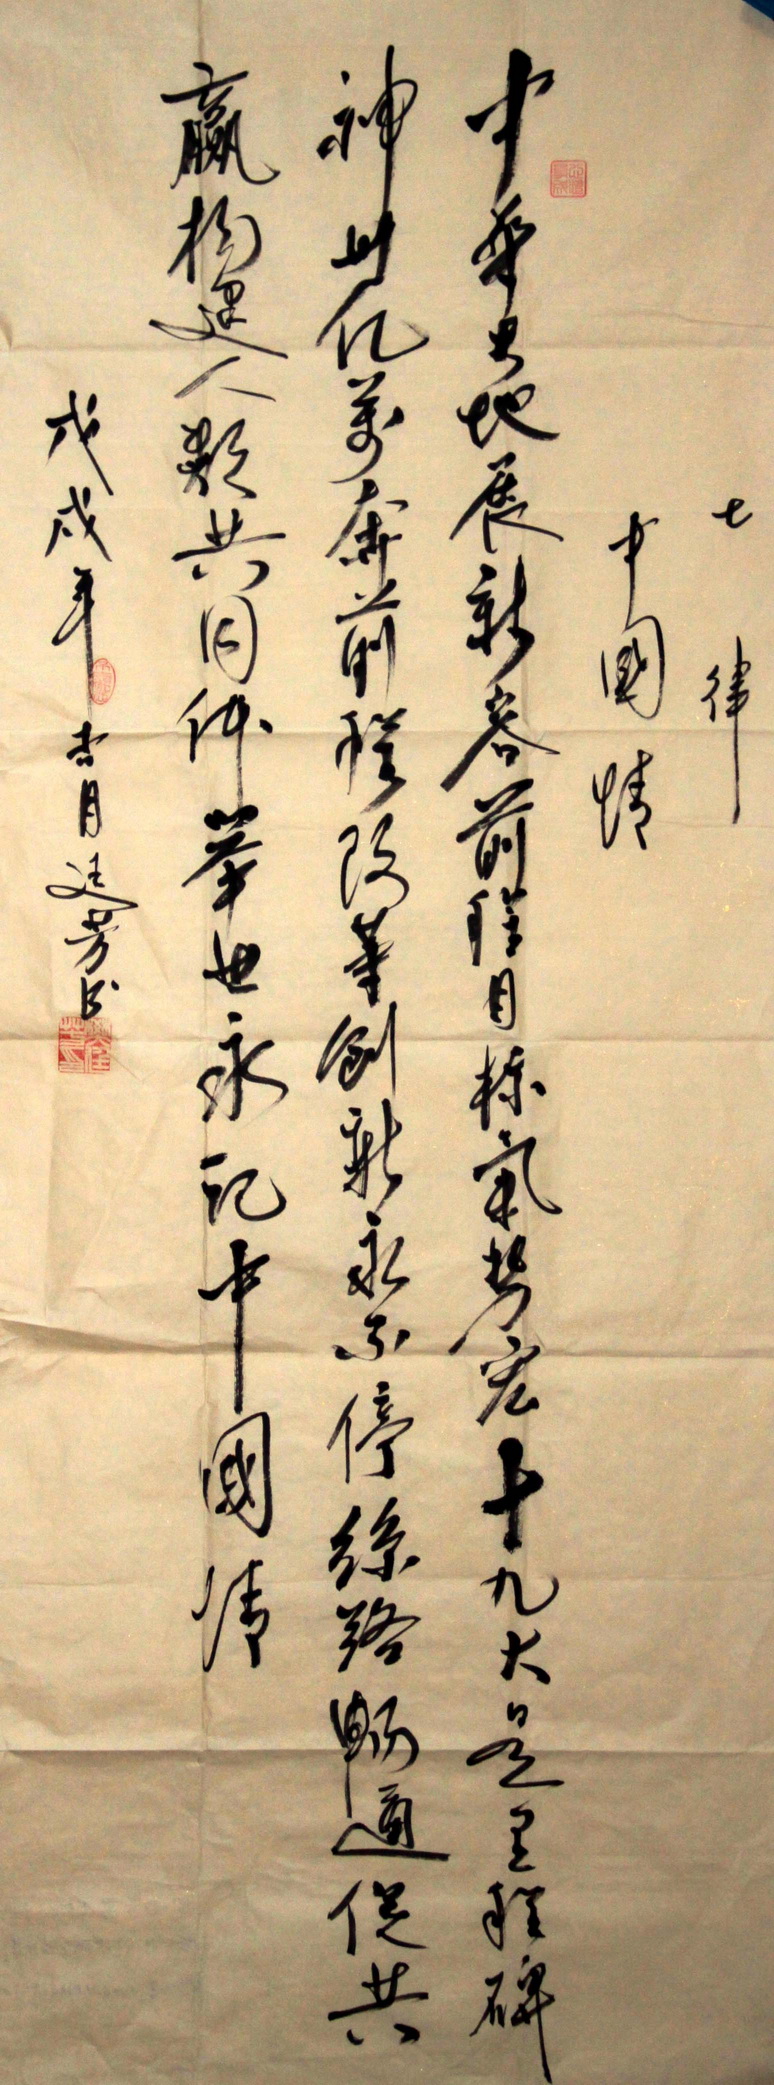 七律
中國情
中華大地展新容前程目标氣势宏十九大是里程碑
神州亿萬奔前程改革創新永不停絲路暢通促共
赢构建人類共同体举世永記中國情
戊戌年吉月廷芳书